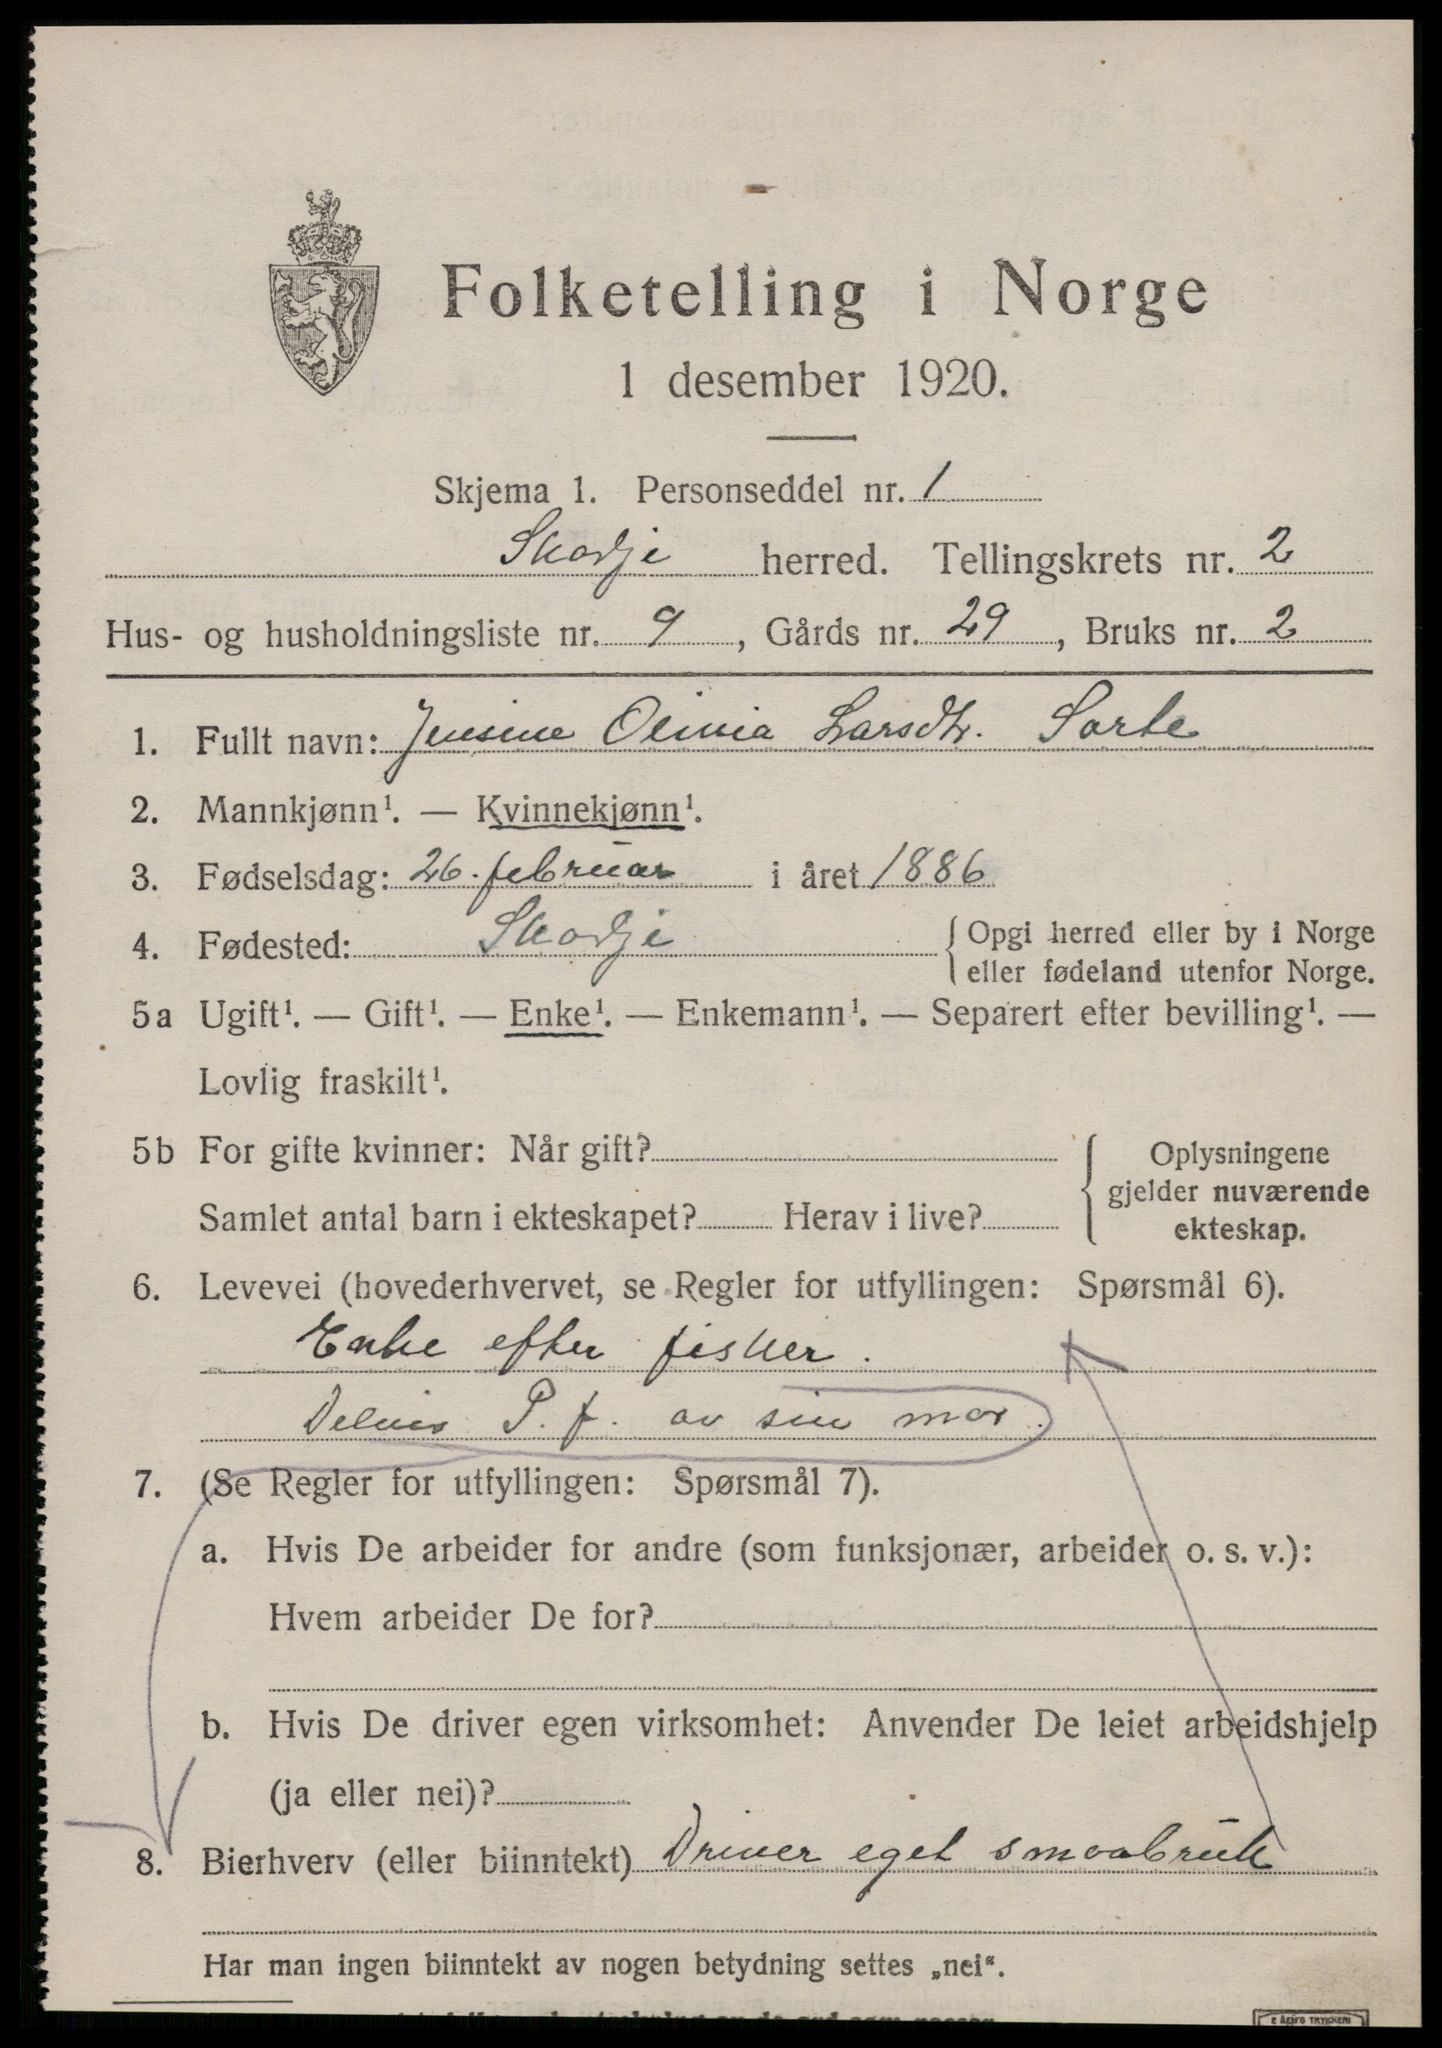 Folketelling i Norge
1 desember 1920.
Skjema 1. Personseddel nr. 1
Skodje herred. Tellingskrets nr. 2
Hus- og husholdningsliste nr. 9, Gårds nr. 29, Bruks nr. 2
1. Fullt navn: Jensine Olivia Larsdtr. Sorte
2. Mannkjønn¹. — Kvinnekjønn¹.
3. Fødselsdag: 26. februar i året 1886
4. Fødested: Skodje {Opgi herred eller by i Norge
eller fødeland utenfor Norge.
5a Ugift¹. — Gift¹. — Enke¹. — Enkemann¹. — Separert efter bevilling¹. —
Lovlig fraskilt¹.
5b For gifte kvinner: Når gift?
Samlet antal barn i ekteskapet? Herav i live?
{Oplysningene
gjelder nuværende
ekteskap.
6. Levevei (hovederhvervet, se Regler for utfyllingen: Spørsmål 6).
Enke efter fisker.
Delvis P. f. av sin mor.
7. (Se Regler for utfyllingen: Spørsmål 7).
a. Hvis De arbeider for andre (som funksjonær, arbeider o. s. v.):
Hvem arbeider De for?
b. Hvis De driver egen virksomhet: Anvender De leiet arbeidshjelp
(ja eller nei)?
8. Bierhverv (eller biinntekt) Driver eget smaabruk
Har man ingen biinntekt av nogen betydning settes „nei“.